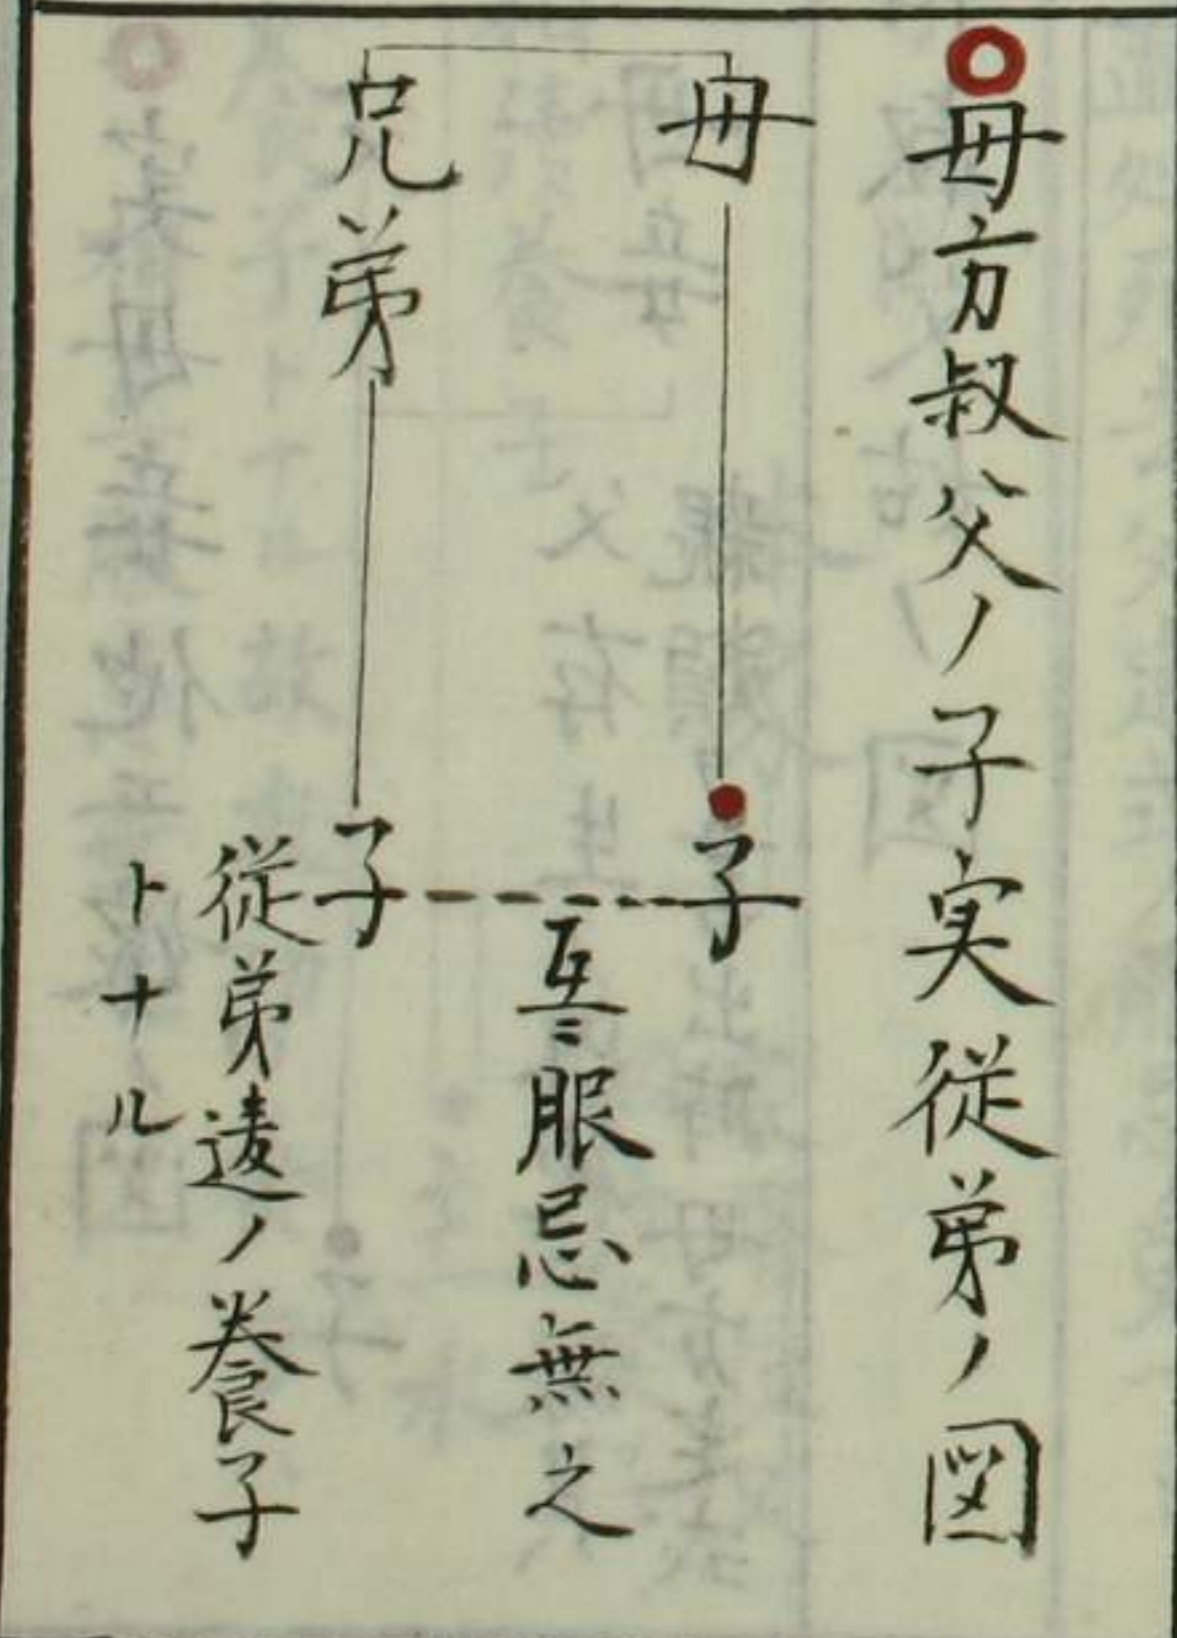 母方叔父ノ子実従弟ノ図
母
子
互ニ服忌無之
兄弟
子
従弟違ノ養子
トナル